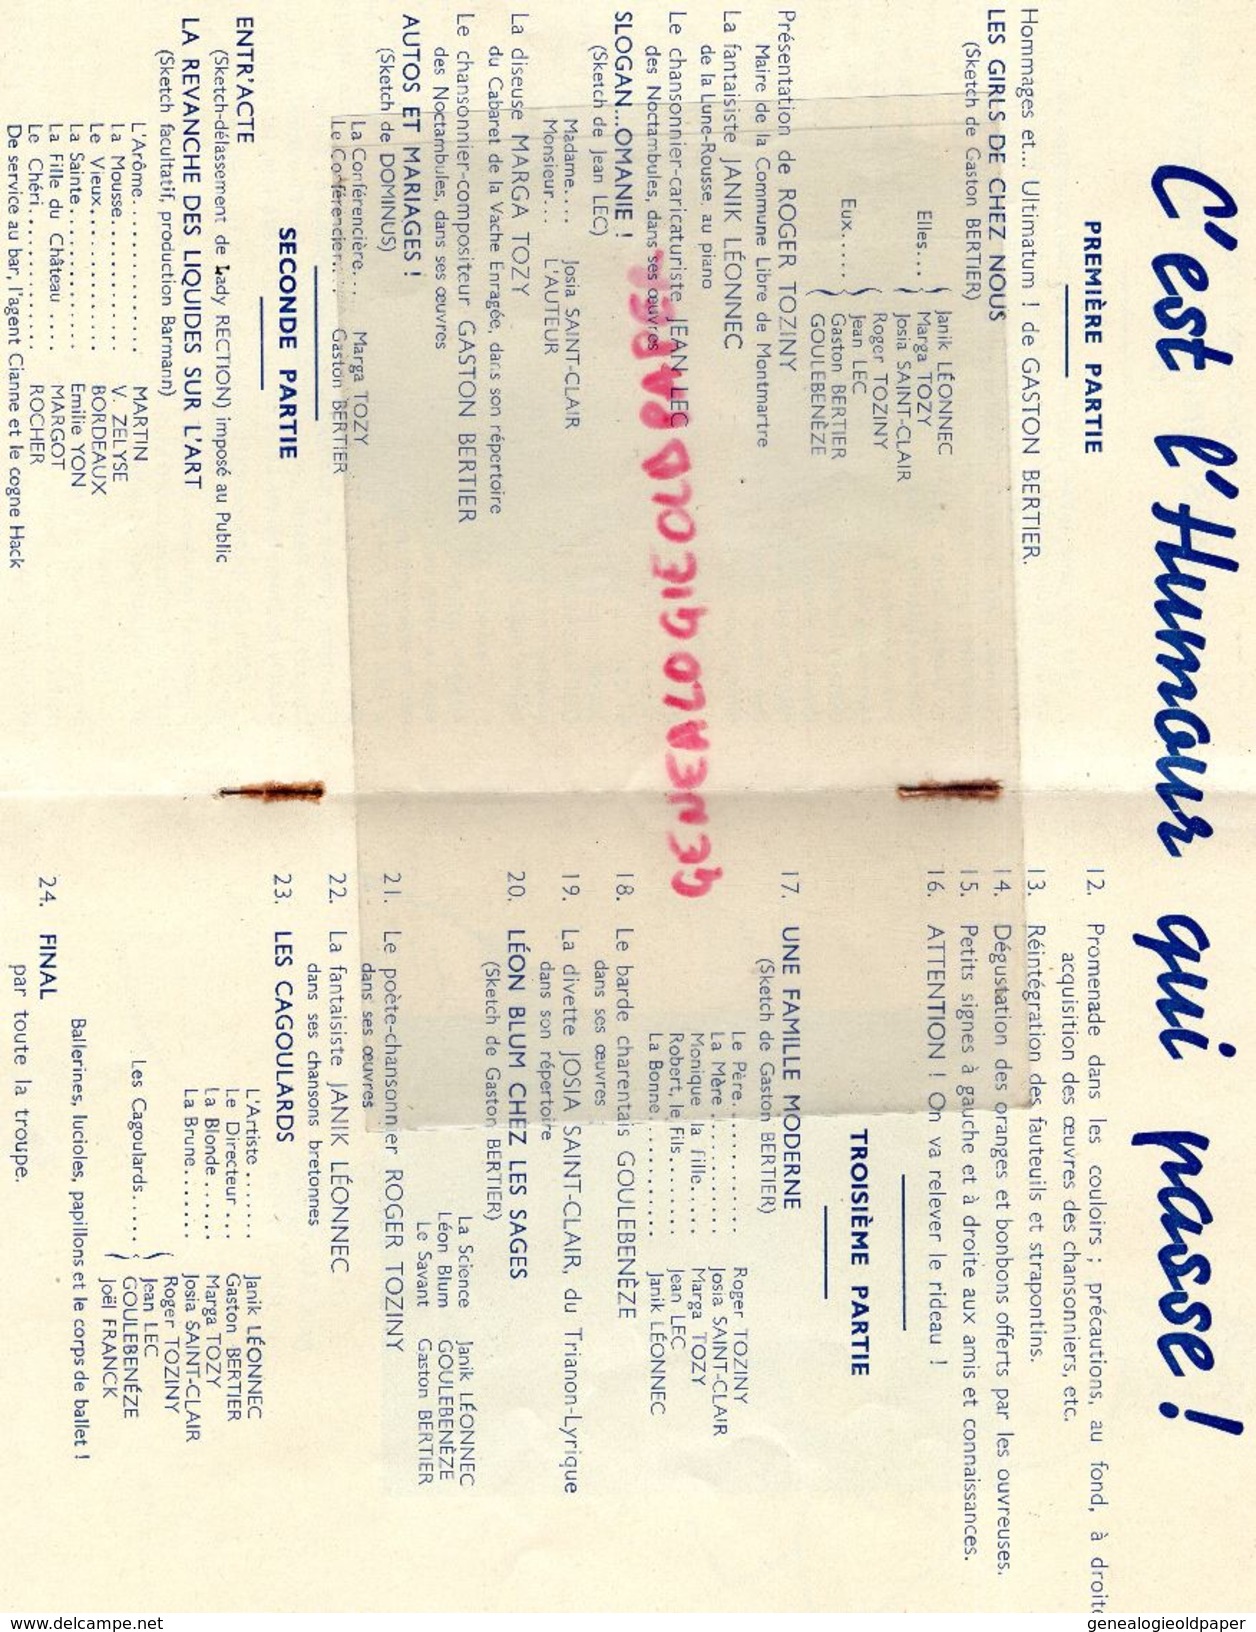 C'est l'Humour qui passe !
PREMIÈRE PARTIE
Hommages et... Ultimatum ! de GASTON BERTIER.
LES GIRLS DE CHEZ NOUS
(Sketch de Gaston BERTIER)
Elles.... { Janik LÉONNEC
Marga TOZY
Josia SAINT-CLAIR
Eux...... { Roger TOZINY
Jean LEC
Gaston BERTIER
GOULEBENÈZE
Présentation de ROGER TOZINY
Maire de la Commune Libre de Montmartre
La fantaisiste JANIK LÉONNEC
de la Lune-Rousse, au piano
Le chansonnier-caricaturiste JEAN LEC
des Noctambules, dans ses œuvres
SLOGAN...OMANIE !
(Sketch de Jean LEC)
Madame.... Josia SAINT-CLAIR
Monsieur... L'AUTEUR
La diseuse MARGA TOZY
du Cabaret de la Vache Enragée, dans son répertoire
Le chansonnier-compositeur GASTON BERTIER
des Noctambules, dans ses œuvres
AUTOS ET MARIAGES !
(Sketch de DOMINUS)
La Conférencière... Marga TOZY
Le Conférencier.... Gaston BERTIER
SECONDE PARTIE
ENTR'ACTE
(Sketch-délassement de Lady RECTION) imposé au Public
LA REVANCHE DES LIQUIDES SUR L'ART
(Sketch facultatif, production Barmann)
L'Arôme............... MARTIN
La Mousse............. V. ZELYSE
Le Vieux.............. BORDEAUX
La Sainte............. Emilie YON
La Fille du Château .... MARGOT
Le Chéri.............. ROCHER
De service au bar, l'agent Cianne et le cogne Hack
12. Promenade dans les couloirs ; précautions, au fond, à droite
acquisition des œuvres des chansonniers, etc.
13. Réintégration des fauteuils et strapontins.
14. Dégustation des oranges et bonbons offerts par les ouvreuses.
15. Petits signes à gauche et à droite aux amis et connaissances.
16. ATTENTION ! On va relever le rideau !
TROISIÈME PARTIE
17. UNE FAMILLE MODERNE
(Sketch de Gaston BERTIER)
Le Père............ Roger TOZINY
La Mère ........... Josia SAINT-CLAIR
Monique la fille..... Marga TOZY
Robert, le fils........ Jean LEC
La Bonne........... Janik LÉONNEC
18. Le barde charentais GOULEBENÈZE
dans ses œuvres
19. La divette JOSIA SAINT-CLAIR, du Trianon-Lyrique
dans son répertoire
20. LÉON BLUM CHEZ LES SAGES
(Sketch de Gaston BERTIER)
La Science Janik LÉONNEC
Léon Blum GOULEBENÈZE
Le Savant Gaston BERTIER
21. Le poète-chansonnier ROGER TOZINY
dans ses œuvres
22. La fantaisiste JANIK LÉONNEC
dans ses chansons bretonnes
23. LES CAGOULARDS
L'Artiste ........ Janik LÉONNEC
Le Directeur .... Gaston BERTIER
La Blonde ....... Marga TOZY
La Brune........ Josia SAINT-CLAIR
Les Cagoulards..... { Roger TOZINY
Jean LEC
GOULEBENÉZE
Joël FRANCK
Ballerines, lucioles, papillons et le corps de ballet !
24. FINAL
par toute la troupe.
www.delcampe.net
genealogieoldpaper